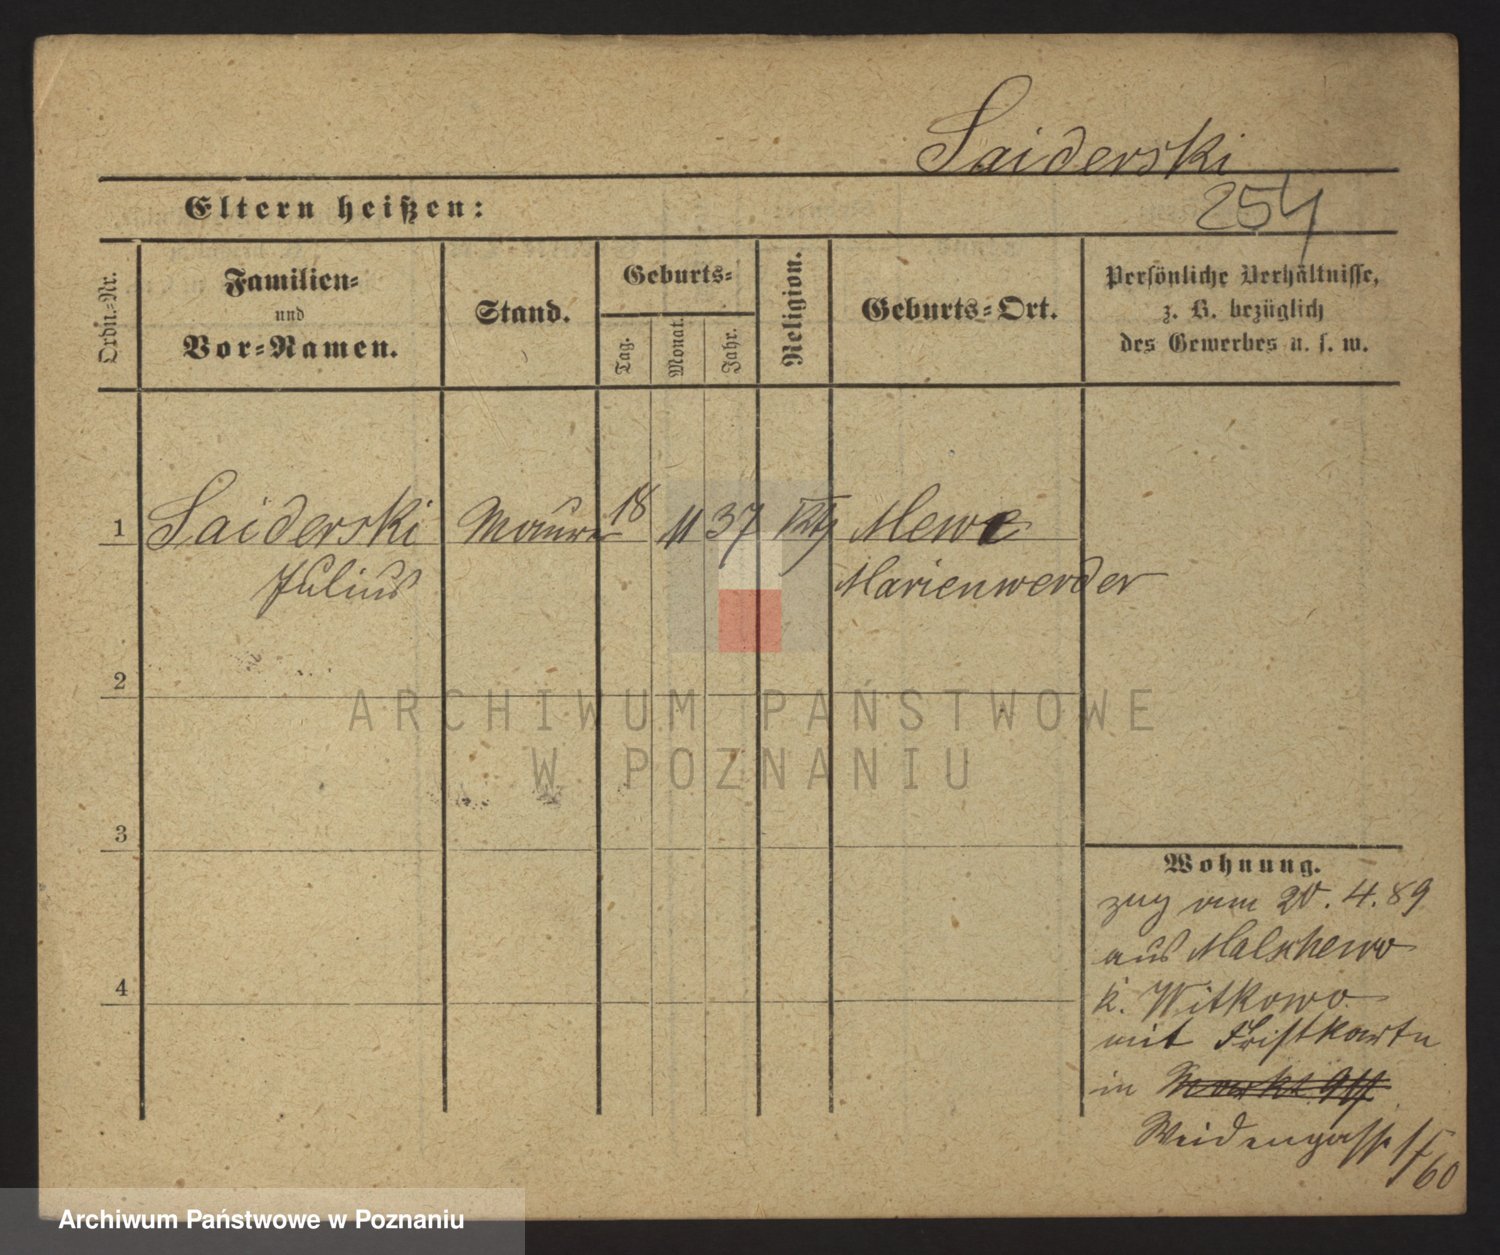 Saiderski
Eltern heißen:
254
Ordn.-Nr.
Familien-
und
Vor-Namen.
Stand.
Geburts-
Tag.
Monat.
Jahr.
Religion.
Geburts-Ort.
Persönliche Verhältnisse,
z. B. bezüglich
des Gewerbes u. s. w.
1 Saiderski Maurer 18 11 37 Mewe
Julius Marienwerder
2
3
4
ARCHIWUM PAŃSTWOWE
W POZNANIU
Wohnung.
zug am 20.4.89
aus Malschewo
k. Witkowo
mit Fristkarte
in
Weidengasse
Archiwum Państwowe w Poznaniu